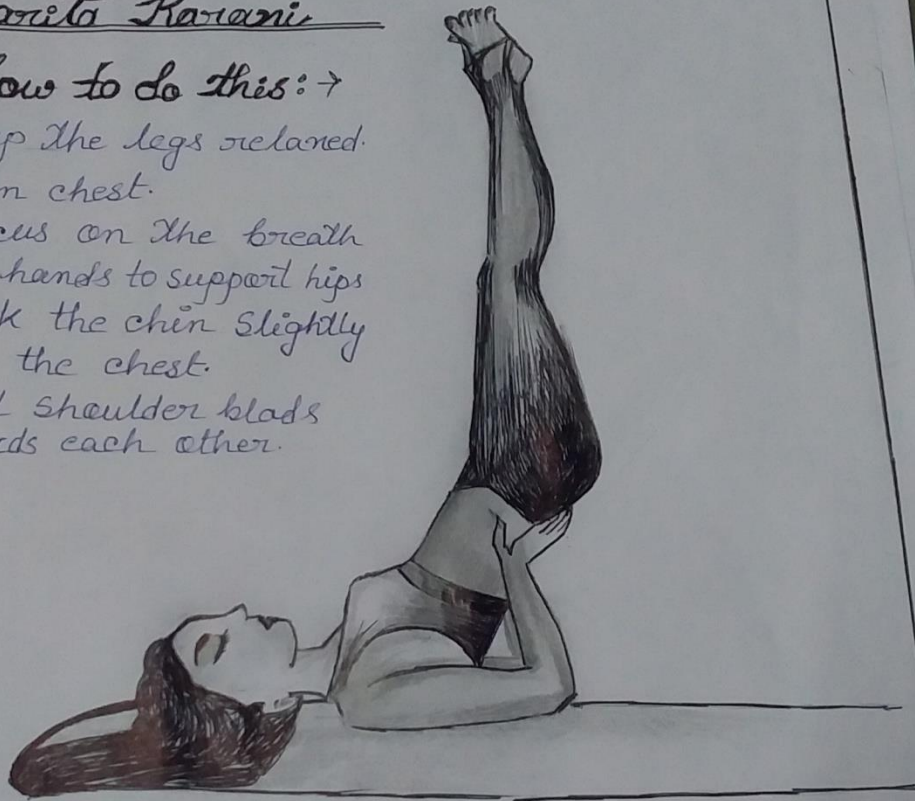 arita Karani
ow to do this:→
p the legs relaned.
n chest.
cus on the breath
hands to support hips
k the chin slightly
the chest.
shoulder blads
ds each other.